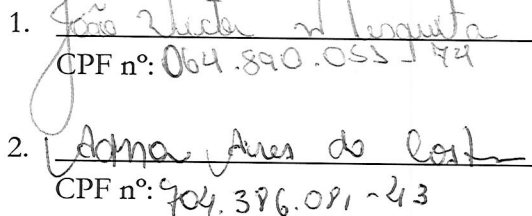 1. João Victor M Mesquita
CPF nº: 064.890.053-74
2. Adna Aires da Costa
CPF nº: 704.386.081-43